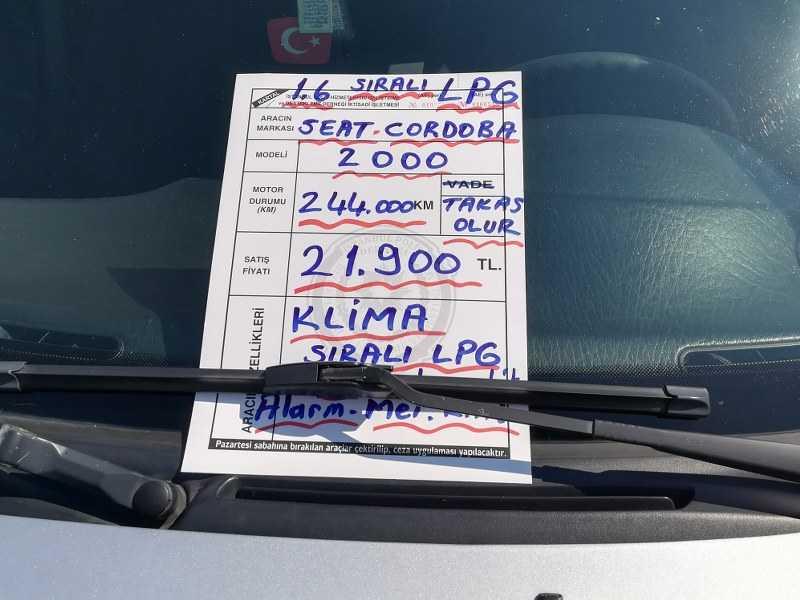 1.6 SIRALI LPG
KARTAL
DERNEĞİ İKTİSADİ İŞLETMESİ
ARACIN MARKASI SEAT-CORDOBA
MODELİ 2000
MOTOR DURUMU (KM) 244.000 KM
VADE
TAKAS OLUR
SATIŞ FİYATI 21.900 TL.
KLİMA
SIRALI LPG
Alarm-Mer.
Pazartesi sabahına bırakılan araçlar çektirilip, ceza uygulaması yapılacaktır.